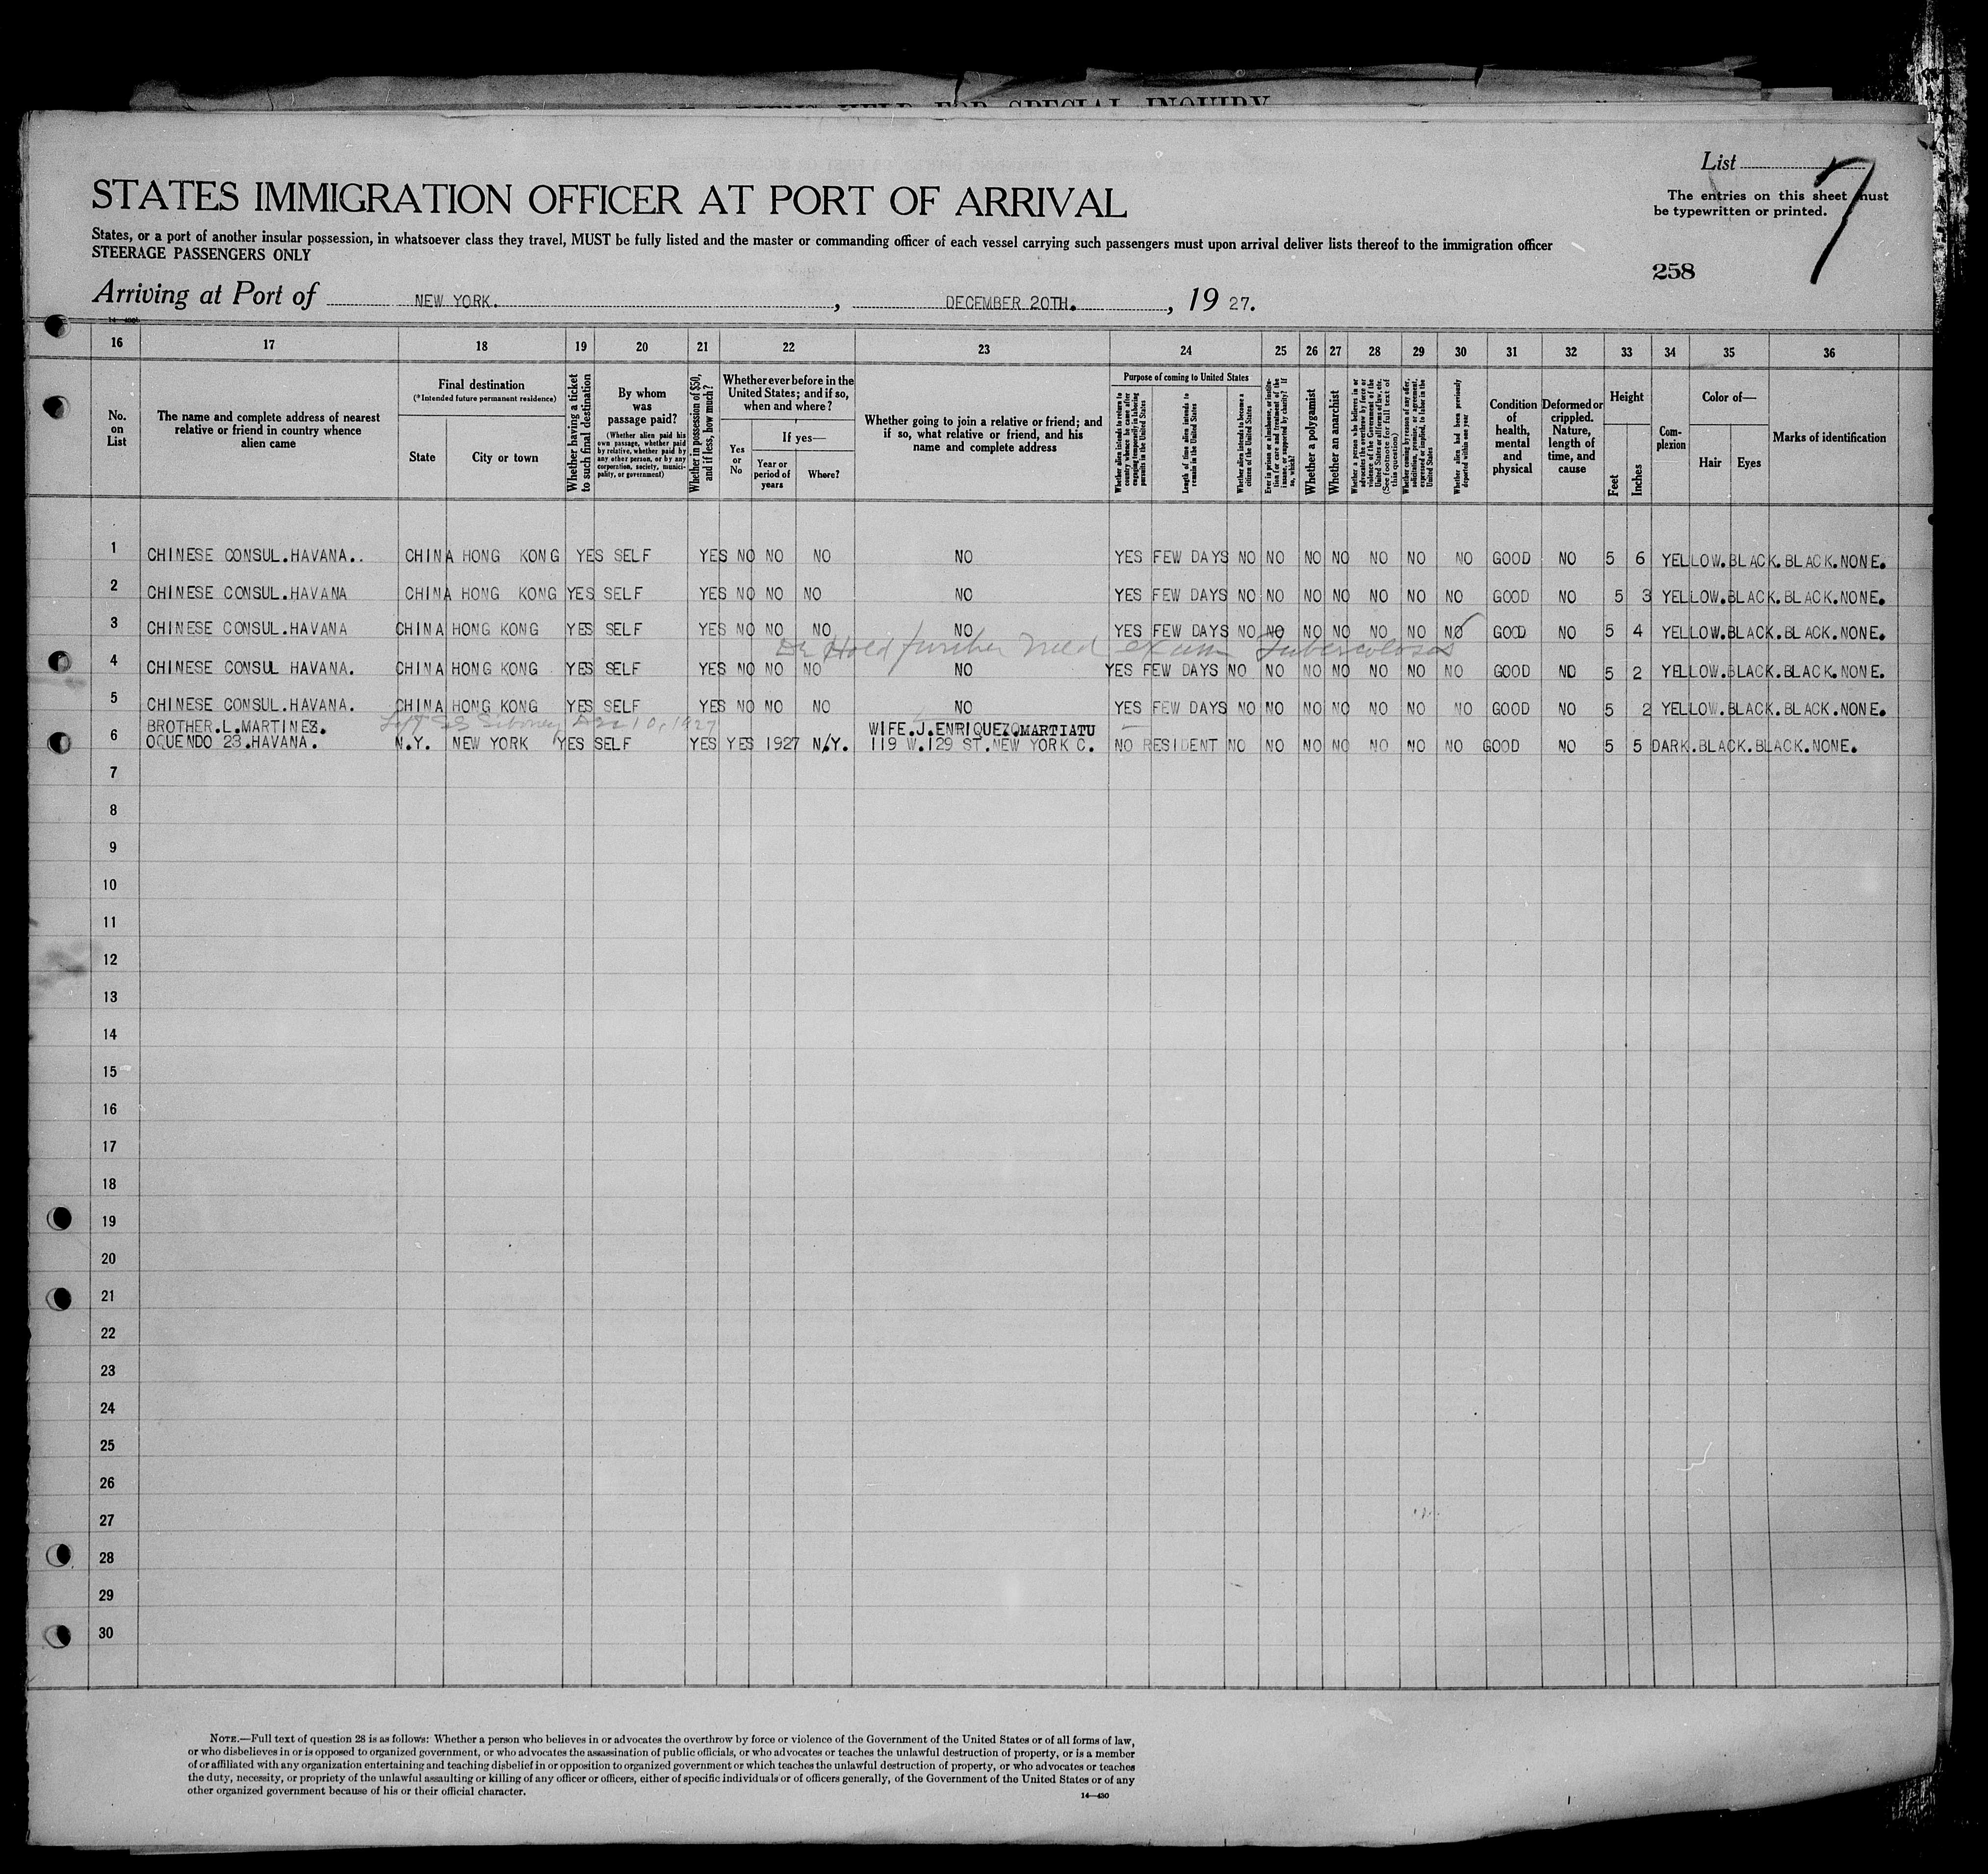 ALIENS HELD FOR SPECIAL INQUIRY
List
7
The entries on this sheet must
be typewritten or printed.
STATES IMMIGRATION OFFICER AT PORT OF ARRIVAL
States, or a port of another insular possession, in whatsoever class they travel, MUST be fully listed and the master or commanding officer of each vessel carrying such passengers must upon arrival deliver lists thereof to the immigration officer
STEERAGE PASSENGERS ONLY
258
Arriving at Port of NEW YORK. , DECEMBER 20TH. , 19 27.
16 17 18 19 20 21 22 23 24 25 26 27 28 29 30 31 32 33 34 35 36
No. on List
The name and complete address of nearest relative or friend in country whence alien came
Final destination
(*Intended future permanent residence)
State
City or town
Whether having a ticket to such final destination
By whom was passage paid?
(Whether alien paid his own passage, whether paid by relative, whether paid by any other person, or by any corporation, society, municipality, or government)
Whether in possession of $50, and if less, how much?
Whether ever before in the United States; and if so, when and where?
Yes or No
If yes—
Year or period of years
Where?
Whether going to join a relative or friend; and if so, what relative or friend, and his name and complete address
Purpose of coming to United States
Whether alien intends to return to country whence he came after engaging temporarily in laboring pursuits in the United States
Length of time alien intends to remain in the United States
Whether alien intends to become a citizen of the United States
Ever in prison or almshouse, or institution for care and treatment of the insane, or supported by charity? If so, which?
Whether a polygamist
Whether an anarchist
Whether a person who believes in or advocates the overthrow by force or violence of the Government of the United States or all forms of law, etc. (See footnote for full text of this question)
Whether coming by reason of any offer, solicitation, promise, or agreement, expressed or implied, to labor in the United States
Whether alien had been previously deported within one year
Condition of health, mental and physical
Deformed or crippled. Nature, length of time, and cause
Height
Feet
Inches
Complexion
Color of—
Hair
Eyes
Marks of identification
1 CHINESE CONSUL.HAVANA.. CHINA HONG KONG YES SELF YES NO NO NO NO YES FEW DAYS NO NO NO NO NO NO NO GOOD NO 5 6 YELLOW.BLACK.BLACK.NONE.
2 CHINESE CONSUL.HAVANA CHINA HONG KONG YES SELF YES NO NO NO NO YES FEW DAYS NO NO NO NO NO NO NO GOOD NO 5 3 YELLOW.BLACK.BLACK.NONE.
3 CHINESE CONSUL.HAVANA CHINA HONG KONG YES SELF YES NO NO NO NO YES FEW DAYS NO NO NO NO NO NO NO GOOD NO 5 4 YELLOW.BLACK.BLACK.NONE.
Hold further med exam Tuberculosis
4 CHINESE CONSUL HAVANA. CHINA HONG KONG YES SELF YES NO NO NO NO YES FEW DAYS NO NO NO NO NO NO NO GOOD NO 5 2 YELLOW.BLACK.BLACK.NONE.
5 CHINESE CONSUL.HAVANA. CHINA HONG KONG YES SELF YES NO NO NO NO YES FEW DAYS NO NO NO NO NO NO NO GOOD NO 5 2 YELLOW.BLACK.BLACK.NONE.
Left SS Siboney Dec 10, 1927
BROTHER.L.MARTINEZ. WIFE.J.ENRIQUEZ.MARTIATU
6 OQUENDO 23.HAVANA. N.Y. NEW YORK YES SELF YES YES 1927 N.Y. 119 W.129 ST.NEW YORK C. NO RESIDENT NO NO NO NO NO NO NO GOOD NO 5 5 DARK.BLACK.BLACK.NONE.
7
8
9
10
11
12
13
14
15
16
17
18
19
20
21
22
23
24
25
26
27
28
29
30
NOTE.—Full text of question 28 is as follows: Whether a person who believes in or advocates the overthrow by force or violence of the Government of the United States or of all forms of law,
or who disbelieves in or is opposed to organized government, or who advocates the assassination of public officials, or who advocates or teaches the unlawful destruction of property, or is a member
of or affiliated with any organization entertaining and teaching disbelief in or opposition to organized government or which teaches the unlawful destruction of property, or who advocates or teaches
the duty, necessity, or propriety of the unlawful assaulting or killing of any officer or officers, either of specific individuals or of officers generally, of the Government of the United States or of any
other organized government because of his or their official character.
14—430